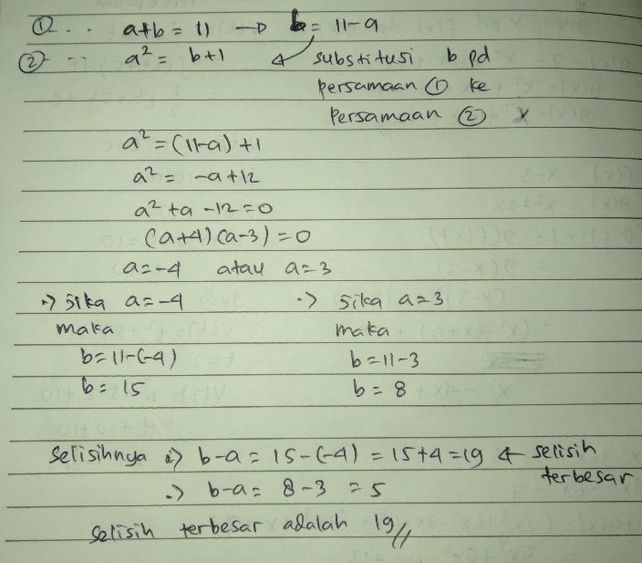 ① .. a+b = 11 → b = 11-a
② .. a² = b+1 substitusi b pd
persamaan ① ke
persamaan ②
a² = (11-a) +1
a² = -a+12
a² +a -12=0
(a+4) (a-3) = 0
a=-4 atau a=3
∴> Jika a=-4 ∴> Jika a=3
maka maka
b= 11-(-4) b=11-3
b= 15 b= 8
Selisihnya ∴> b-a = 15-(-4) = 15+4=19 ← selisih
terbesar
∴> b-a= 8-3 =5
Selisih terbesar adalah 19//